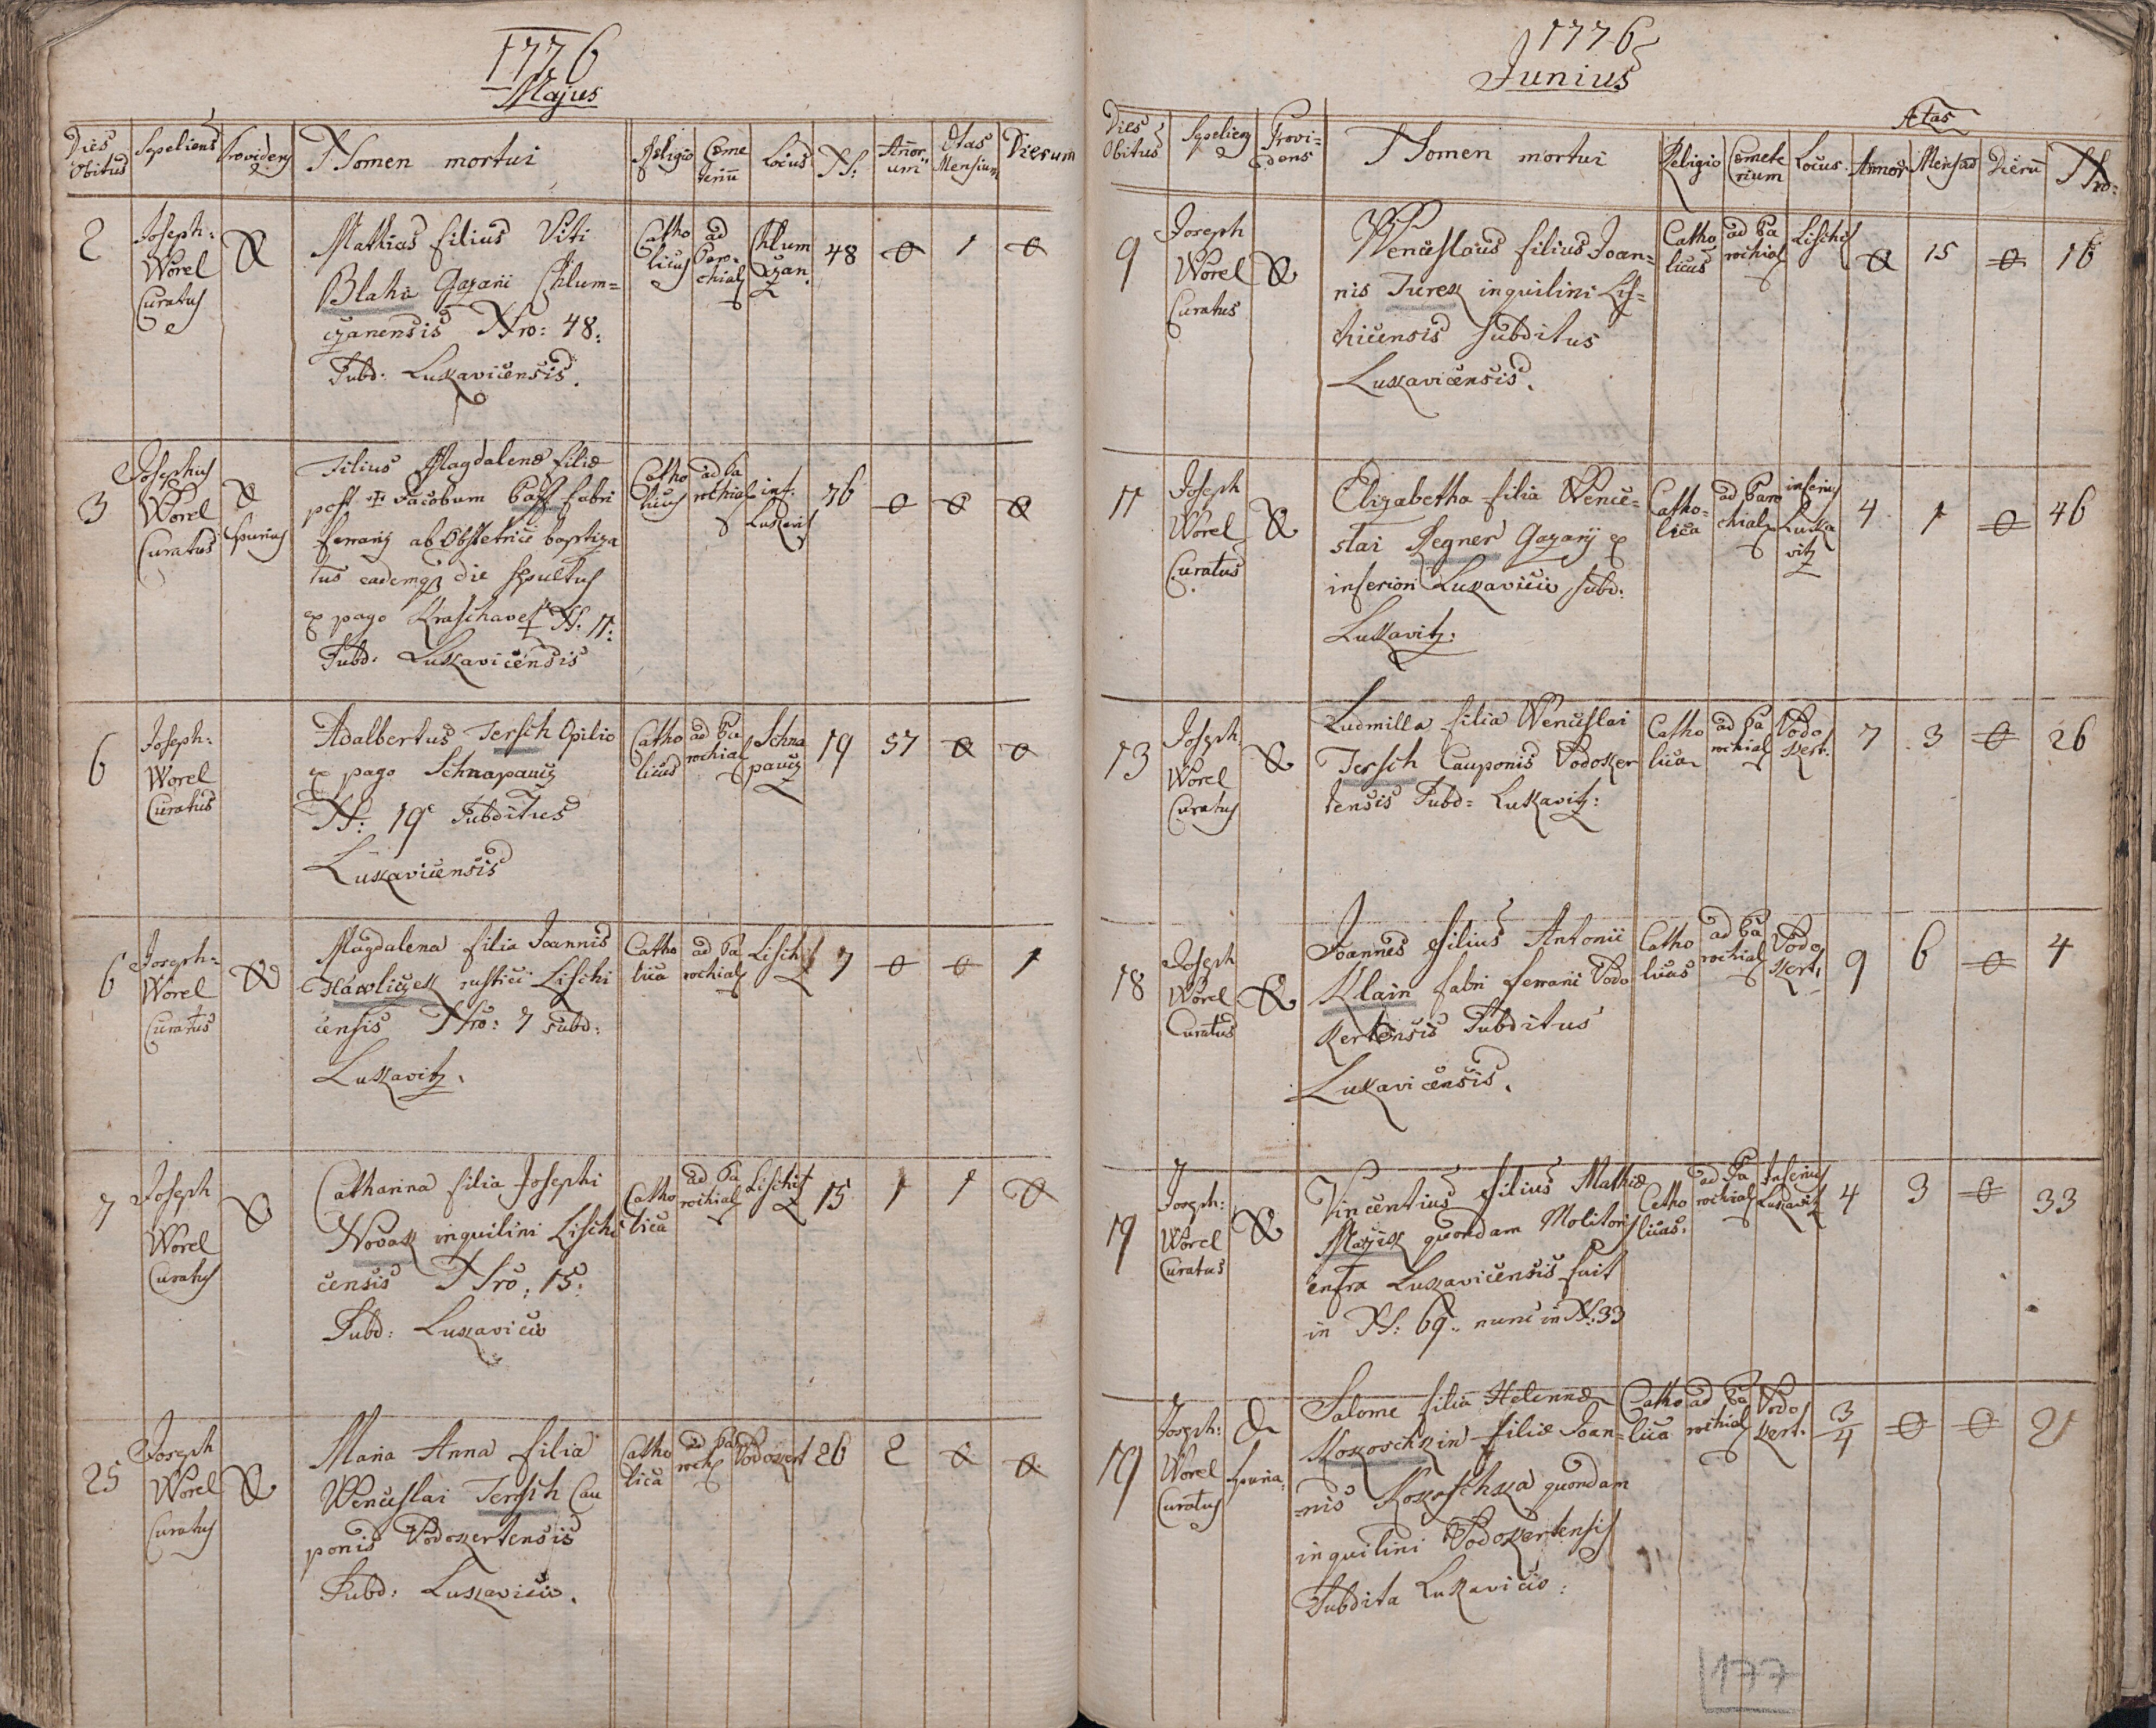 1776
Majus
Dies Obitus
Sepeliens
Providens
Nomen mortui
Religio
Cœme teriũ
Locus
N:
Annor um
Etas Mensium
Dierum
2
Joseph:
Worel
Curatus
Mathias filius Viti
Blaha Gazarii Chlum=
czanensis Nro: 48:
Subd: Lukavicensis.
Catho
licus
ad
Paro-
chial
Chlum
czan.
48
0
1
0
3
Josephus
Worel
Curatus
spurius
Filius Magdalenæ filiæ
post Jacobum fabri
ferrarij ab Obstetrice baptiza
tus eademq die sepultus
ex pago N: 11:
Subd: Lukavicensis
Catho
licus
ad Pa
rochial
inf:
Lukavi
76
0
0
0
6
Joseph:
Worel
Curatus
Adalbertus Tersch Opilio
ex pago Schnapaucz
N: 19 Subditus
Lukavicensis
Catho
licus
ad Pa
rochial
Schna
paucz
19
57
0
0
6
Joseph:
Worel
Curatus
Magdalena filia Joannis
Hawliczek rustici Lischi
censis Nro: 7 subd:
Lukavitz.
Catho
lica
ad Pa
rochial
Lischitz
7
0
0
1
7
Joseph
Worel
Curatus
Catharina filia Josephi
Novak inquilini Lischi
censis Nro: 15:
Subd: Lukavicio
Catho
lica
ad Pa
rochial
Lischitz
15
1
1
0
25
Joseph
Worel
Curatus
Maria Anna filia
Wenceslai Tersch Cau
ponis Vodokertensis
Subd: Lukavicio.
Catho
lica
ad Pa
roch
Vodokert
26
2
0
0
1776
Junius
Ætas
Dies Obitus
Sepeliens
Provi=
dens
Nomen mortui
Religio
Cœmete
rium
Locus
Annor
Mensiũ
Dierũ
Nro:
9
Joseph
Worel
Curatus
Wenceslaus filius Joan=
nis Turek inquilini Lis=
chicensis Subditus
Lukavicensis.
Catho
licus
ad Pa
rochial
Lischitz
0
15
0
16
11
Joseph
Worel
Curatus
Elizabetha filia Wence=
slai Regner Gazarij ex
inferiori Lukavicio subd:
Lukavitz:
Catho=
lica
ad Paro
chial
inferius
Luka
vitz
4
1
0
46
13
Joseph
Worel
Curatus
Ludmilla filia Wenceslai
Tersch Cauponis Vodoker
tensis Subd= Lukavitz:
Catho
lica
ad Pa
rochial
Vodo
kert.
7
3
0
26
18
Joseph
Worel
Curatus
Joannes filius Antonii
Klain fabri ferrarii Vodo
kertensis Subditus
Lukavicensis.
Catho
licus
ad Pa
rochial
Vodo
kert.
9
6
0
4
19
Joseph:
Worel
Curatus
Vincentius filius Mathiæ
quondam Molitoris
infra Lukavicensis fuit
in N: 69. nunc in N: 33
Catho
licus.
ad Pa
rochial
Inferius
Lukavitz
4
3
0
33
19
Joseph:
Worel
Curatus
spuria
Salome filia Helennæ
filiæ Joan=
nis quondam
inquilini Vodokertensis
Subdita Lukavicio:
Catho
lica
ad Pa
rochial
Vodo
kert.
3/4
0
0
21
177